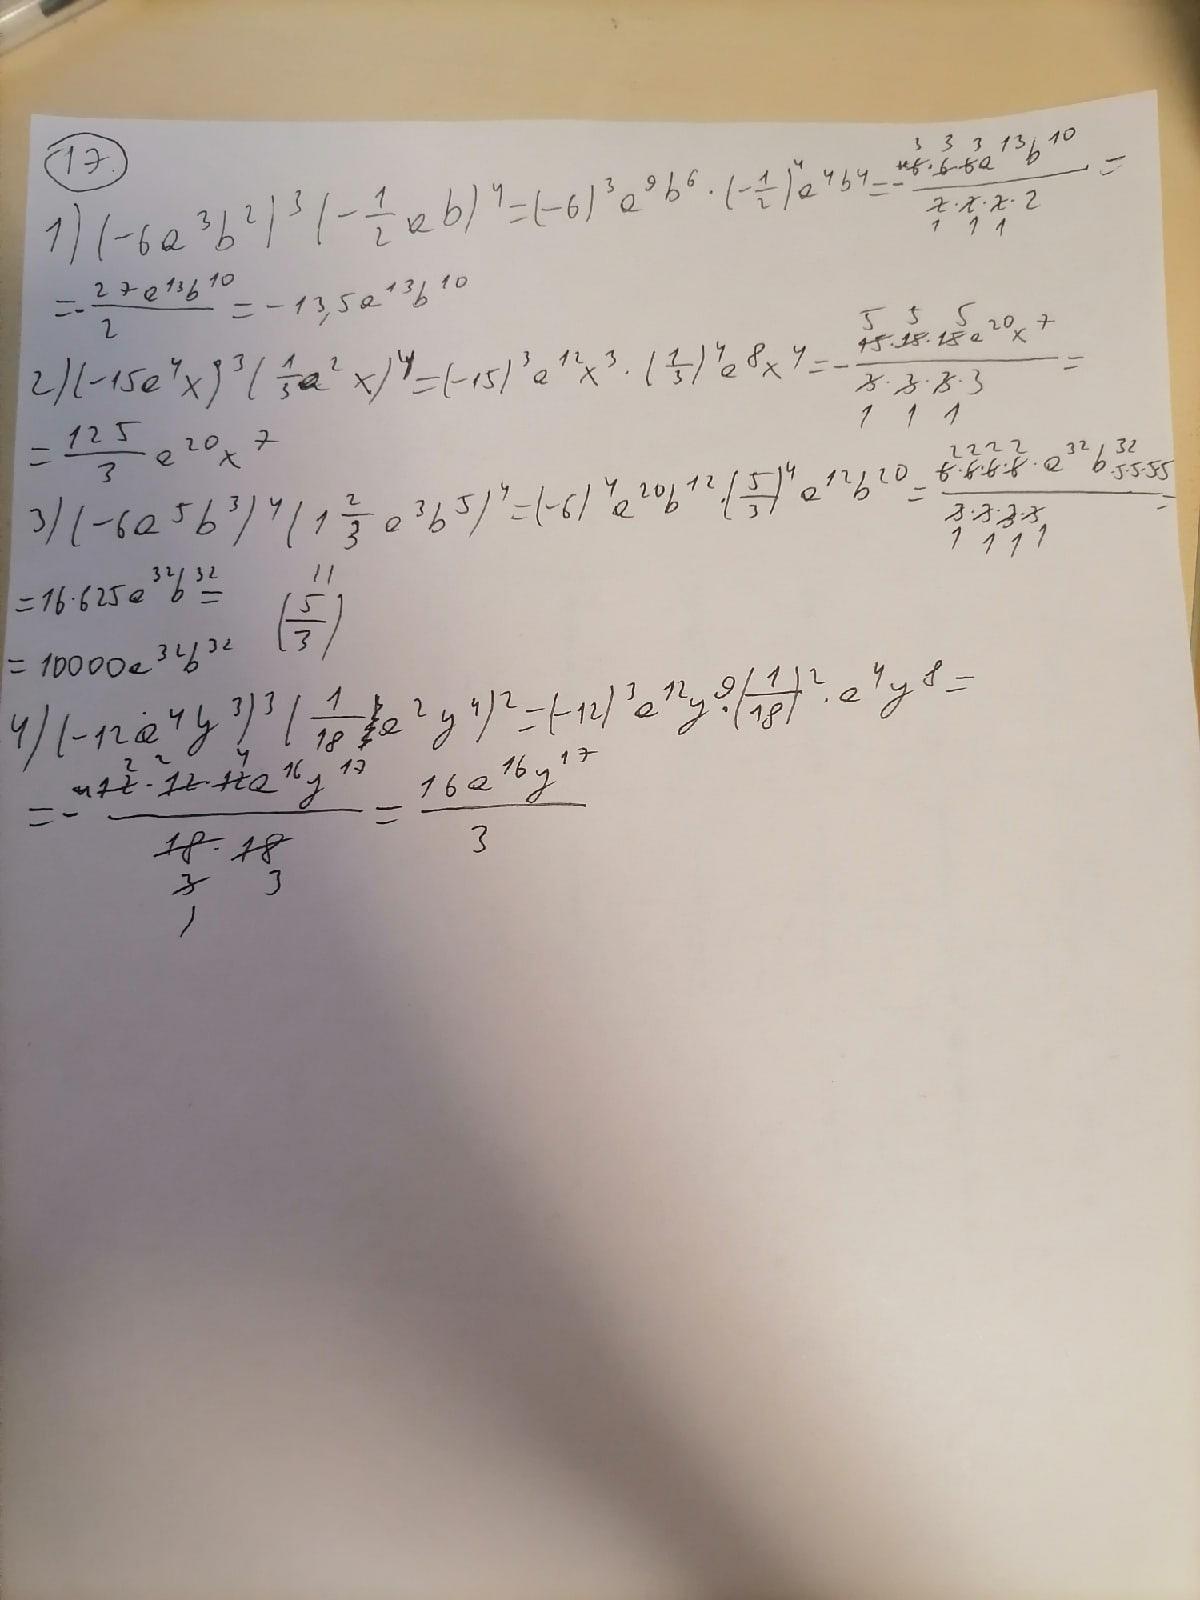 17.
1) (-6a³b²)³(-1/2 ab)⁴=(-6)³a⁹b⁶·(-1/2)⁴a⁴b⁴=-6·6·6a¹³b¹⁰/2·2·2·2=
=-27a¹³b¹⁰/2=-13,5a¹³b¹⁰
2) (-15a⁴x)³(1/3 a²x)⁴=(-15)³a¹²x³·(1/3)⁴a⁸x⁴=-15·15·15a²⁰x⁷/3·3·3·3=
=125/3 a²⁰x⁷
3) (-6a⁵b³)⁴(1 2/3 a³b⁵)⁴=(-6)⁴a²⁰b¹²·(5/3)⁴a¹²b²⁰=6·6·6·6·a³²b³²·5·5·55/3·3·3·3=
=16·625a³²b³²= (5/3)
=10000a³²b³²
4) (-12a⁴y³)³(1/18 a²y⁴)²=(-12)³a¹²y⁹·(1/18)²·a⁴y⁸=
=-12·12·12a¹⁶y¹⁷/18·18=16a¹⁶y¹⁷/3